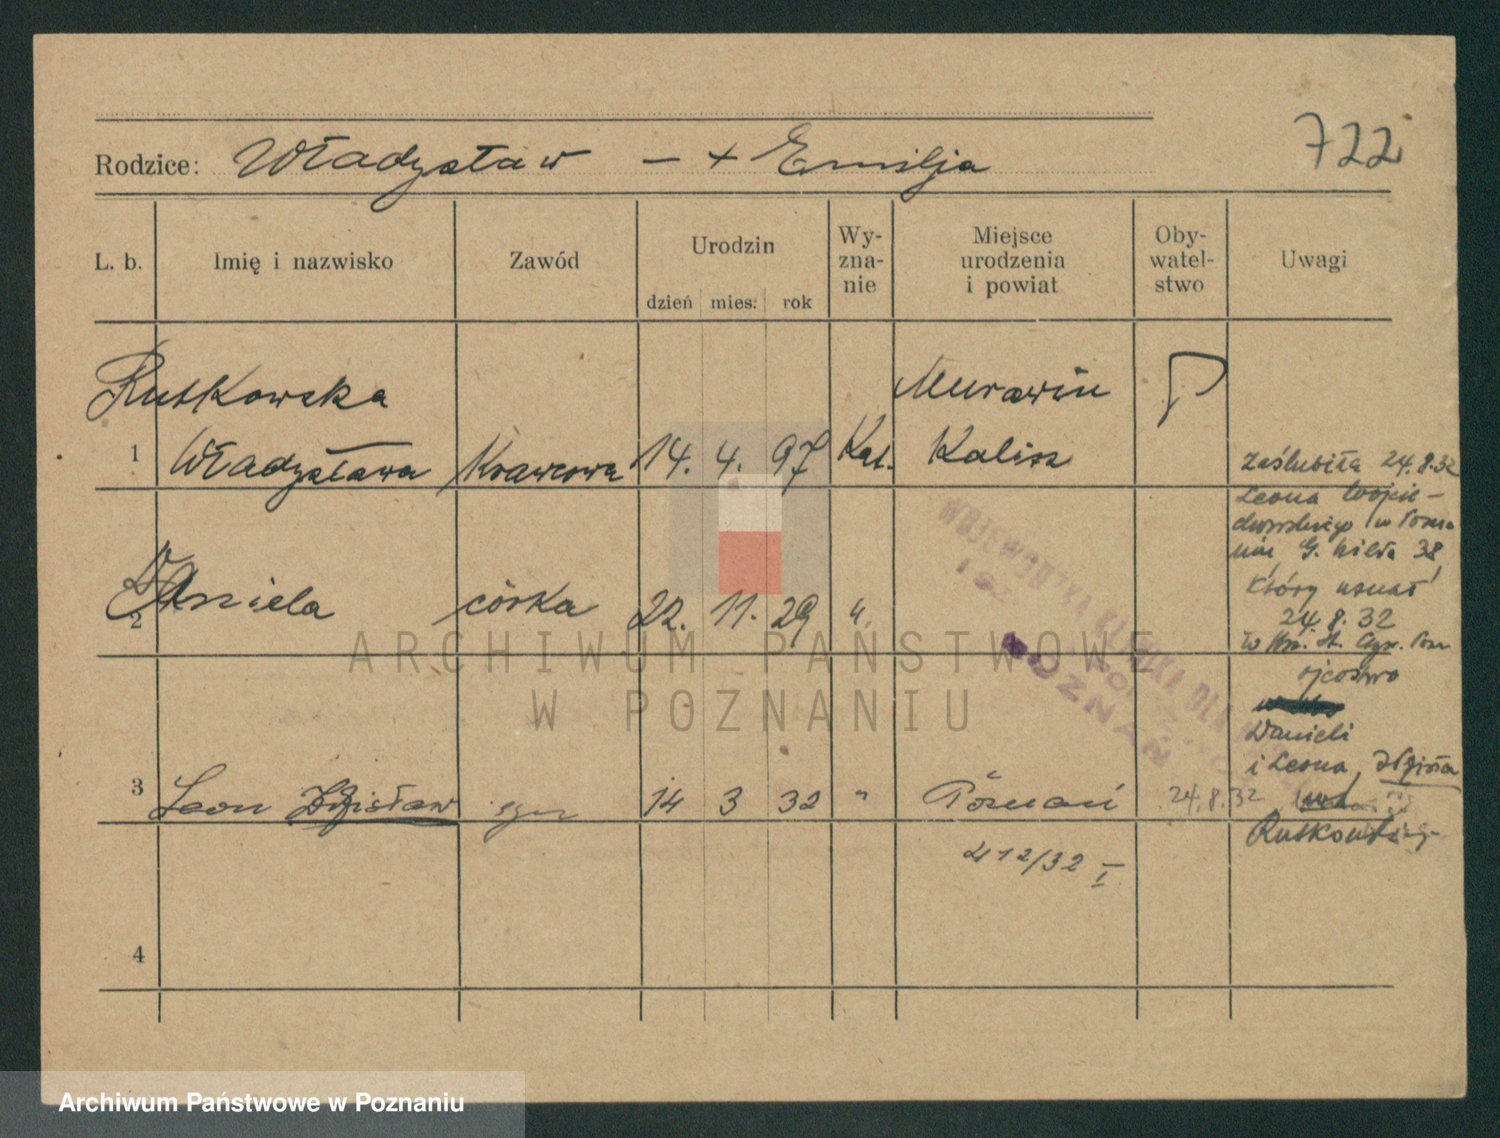 722
Rodzice: Władysław — + Emilja
L. b. Imię i nazwisko Zawód Urodzin dzień mies. rok Wy-zna-nie Miejsce urodzenia i powiat Oby-watel-stwo Uwagi
Rutkowska Murawin P
1 Władysława Krawcowa 14. 4. 97 Kat. Kalisz
zaślubiła 24.8.32
Leona Wojcie-
chowskiego w Pozna
niu, G. Wilda 38,
który uznał
24 8. 32
ojcostwo
Danieli
i Leona, Zdzisła
Rutkowski
2 Daniela córka 22. 11. 29 "
WOJEWÓDZKA KLINIKA DLA
POZNAŃ
3 Leon Zdzisław syn 14 3 32 " Poznań 24.8.32
412/32 I
4
ARCHIWUM PAŃSTWOWE
W POZNANIU
Archiwum Państwowe w Poznaniu